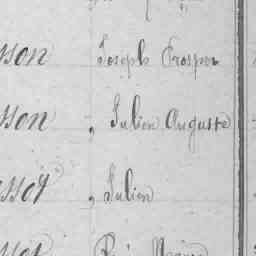 sson Joseph Prosper
sson , Julien Auguste
ssoy , Julien